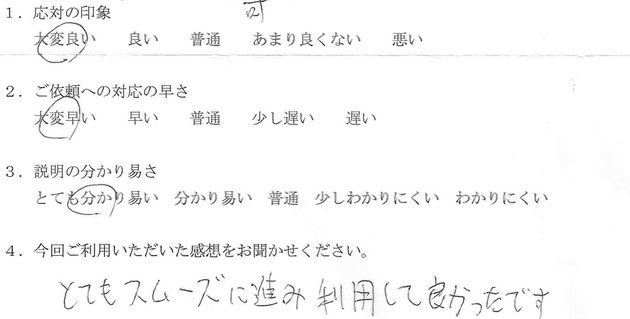 1．応対の印象
大変良い　良い　普通　あまり良くない　悪い
2．ご依頼への対応の早さ
大変早い　早い　普通　少し遅い　遅い
3．説明の分かり易さ
とても分かり易い　分かり易い　普通　少しわかりにくい　わかりにくい
4．今回ご利用いただいた感想をお聞かせください。
とてもスムーズに進み利用して良かったです